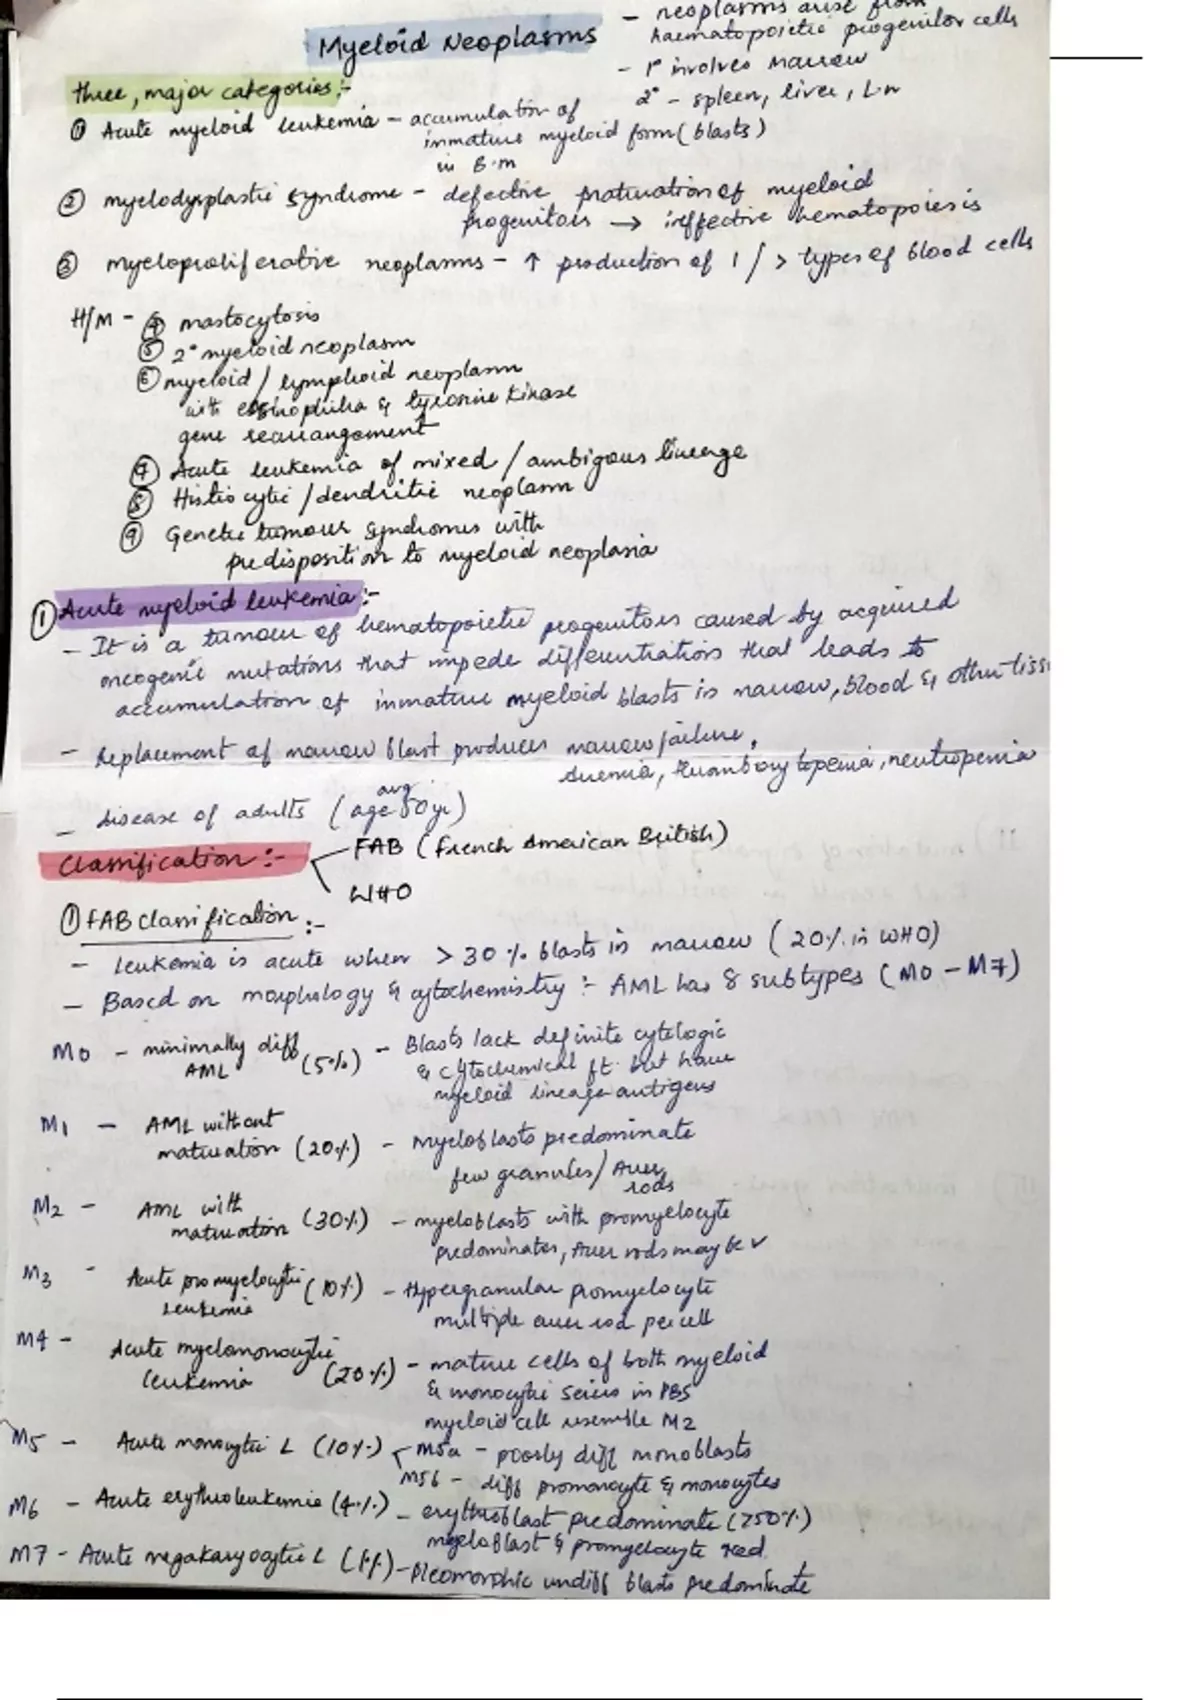 Myeloid Neoplasms
- neoplasms arise from
haematopoietic progenitor cells
- 1° involves marrow
2° - spleen, liver, L.n
three, major categories:-
① Acute myeloid leukemia - accumulation of
immature myeloid form (blasts)
in B.m
② myelodysplastic syndrome - defective maturation of myeloid
progenitors → ineffective hematopoiesis
③ myeloproliferative neoplasms - ↑ production of 1 / > types of blood cells
H/M - ④ mastocytosis
⑤ 2° myeloid neoplasm
⑥ myeloid / lymphoid neoplasm
with eosinophilia & tyrosine kinase
gene rearrangement
⑦ Acute leukemia of mixed / ambigous lineage
⑧ Histiocytic / dendritic neoplasm
⑨ Genetic tumour syndromes with
predisposition to myeloid neoplasia
① Acute myeloid leukemia:-
- It is a tumour of hematopoietic progenitors caused by acquired
oncogenic mutations that impede differentiation that leads to
accumulation of immature myeloid blasts in marrow, blood & other tiss
- Replacement of marrow blast produces marrow failure,
Anemia, thrombocytopenia, neutropenia
- disease of adults (avg age 50yr)
Classification:-
FAB (French American British)
WHO
① FAB classification:-
- Leukemia is acute when > 30% blasts in marrow (20% in WHO)
- Based on morphology & cytochemistry :- AML has 8 subtypes (M0 - M7)
M0 - minimally diff AML (5%) - Blasts lack definite cytologic
& cytochemical ft. but have
myeloid lineage antigens
M1 - AML without
maturation (20%) - Myeloblasts predominate
few granules / Auer
rods
M2 - AML with
maturation (30%) - myeloblasts with promyelocyte
predominates, Auer rods may be ✓
M3 - Acute promyelocytic (10%) - Hypergranular promyelocyte
Leukemia multiple auer rod per cell
M4 - Acute myelomonocytic
leukemia (20%) - mature cells of both myeloid
& monocytic series in PBS
myeloid cell resemble M2
M5 - Acute monocytic L (10%) M5a - poorly diff monoblasts
M5b - diff promonocyte & monocytes
M6 - Acute erythroleukemia (4%) - erythroblast predominate (>50%)
myeloblast & promyelocyte
M7 - Acute megakaryocytic L (1%) - pleomorphic undiff blasts predominate